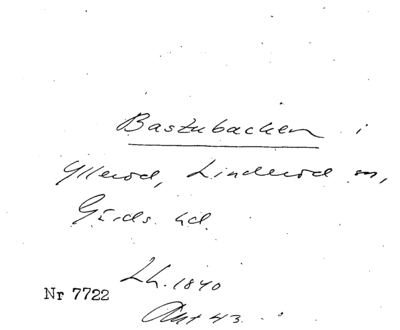 Bastubacken i
Ylleröd, Linderöd sn,
Gärds hd.
Lh. 1840
Akt 43.
Nr 7722